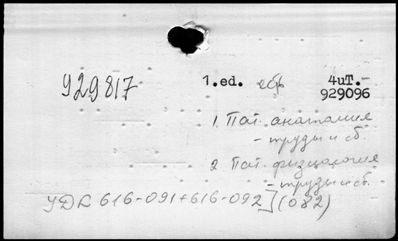 929817
1.ed. 4иТ.-
929096
1. Пат. анатомия
- труды и сб.
2. Пат. физиология
- труды и сб.
УДК 616-091+616-092](082)